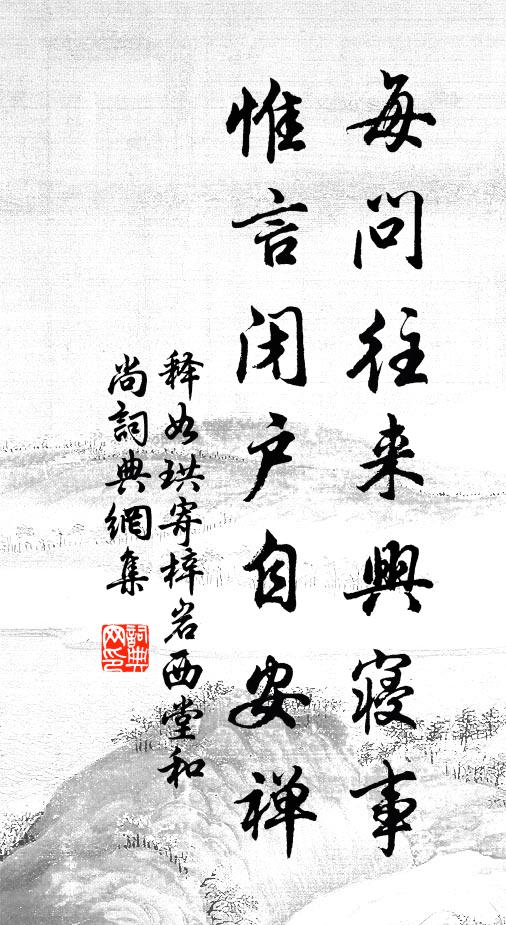 每问往来興寝事
惟言闭户自安禅
释如珙寄梓岩西堂和
尚詞典網集
詞典
网印